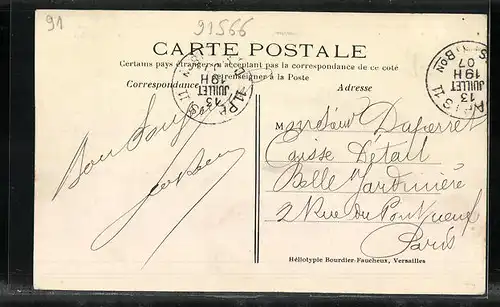 91
91566
CARTE POSTALE
Certains pays étrangers n'acceptant pas la correspondance de ce coté
se renseigner à la Poste
Correspondance
Adresse
13
JUILLET
19H
13
JUILLET
19H
07
Monsieur
Caisse Détail
Belle Jardinière
2 Rue du Pont Neuf
Paris
Héliotypie Bourdier-Faucheux, Versailles